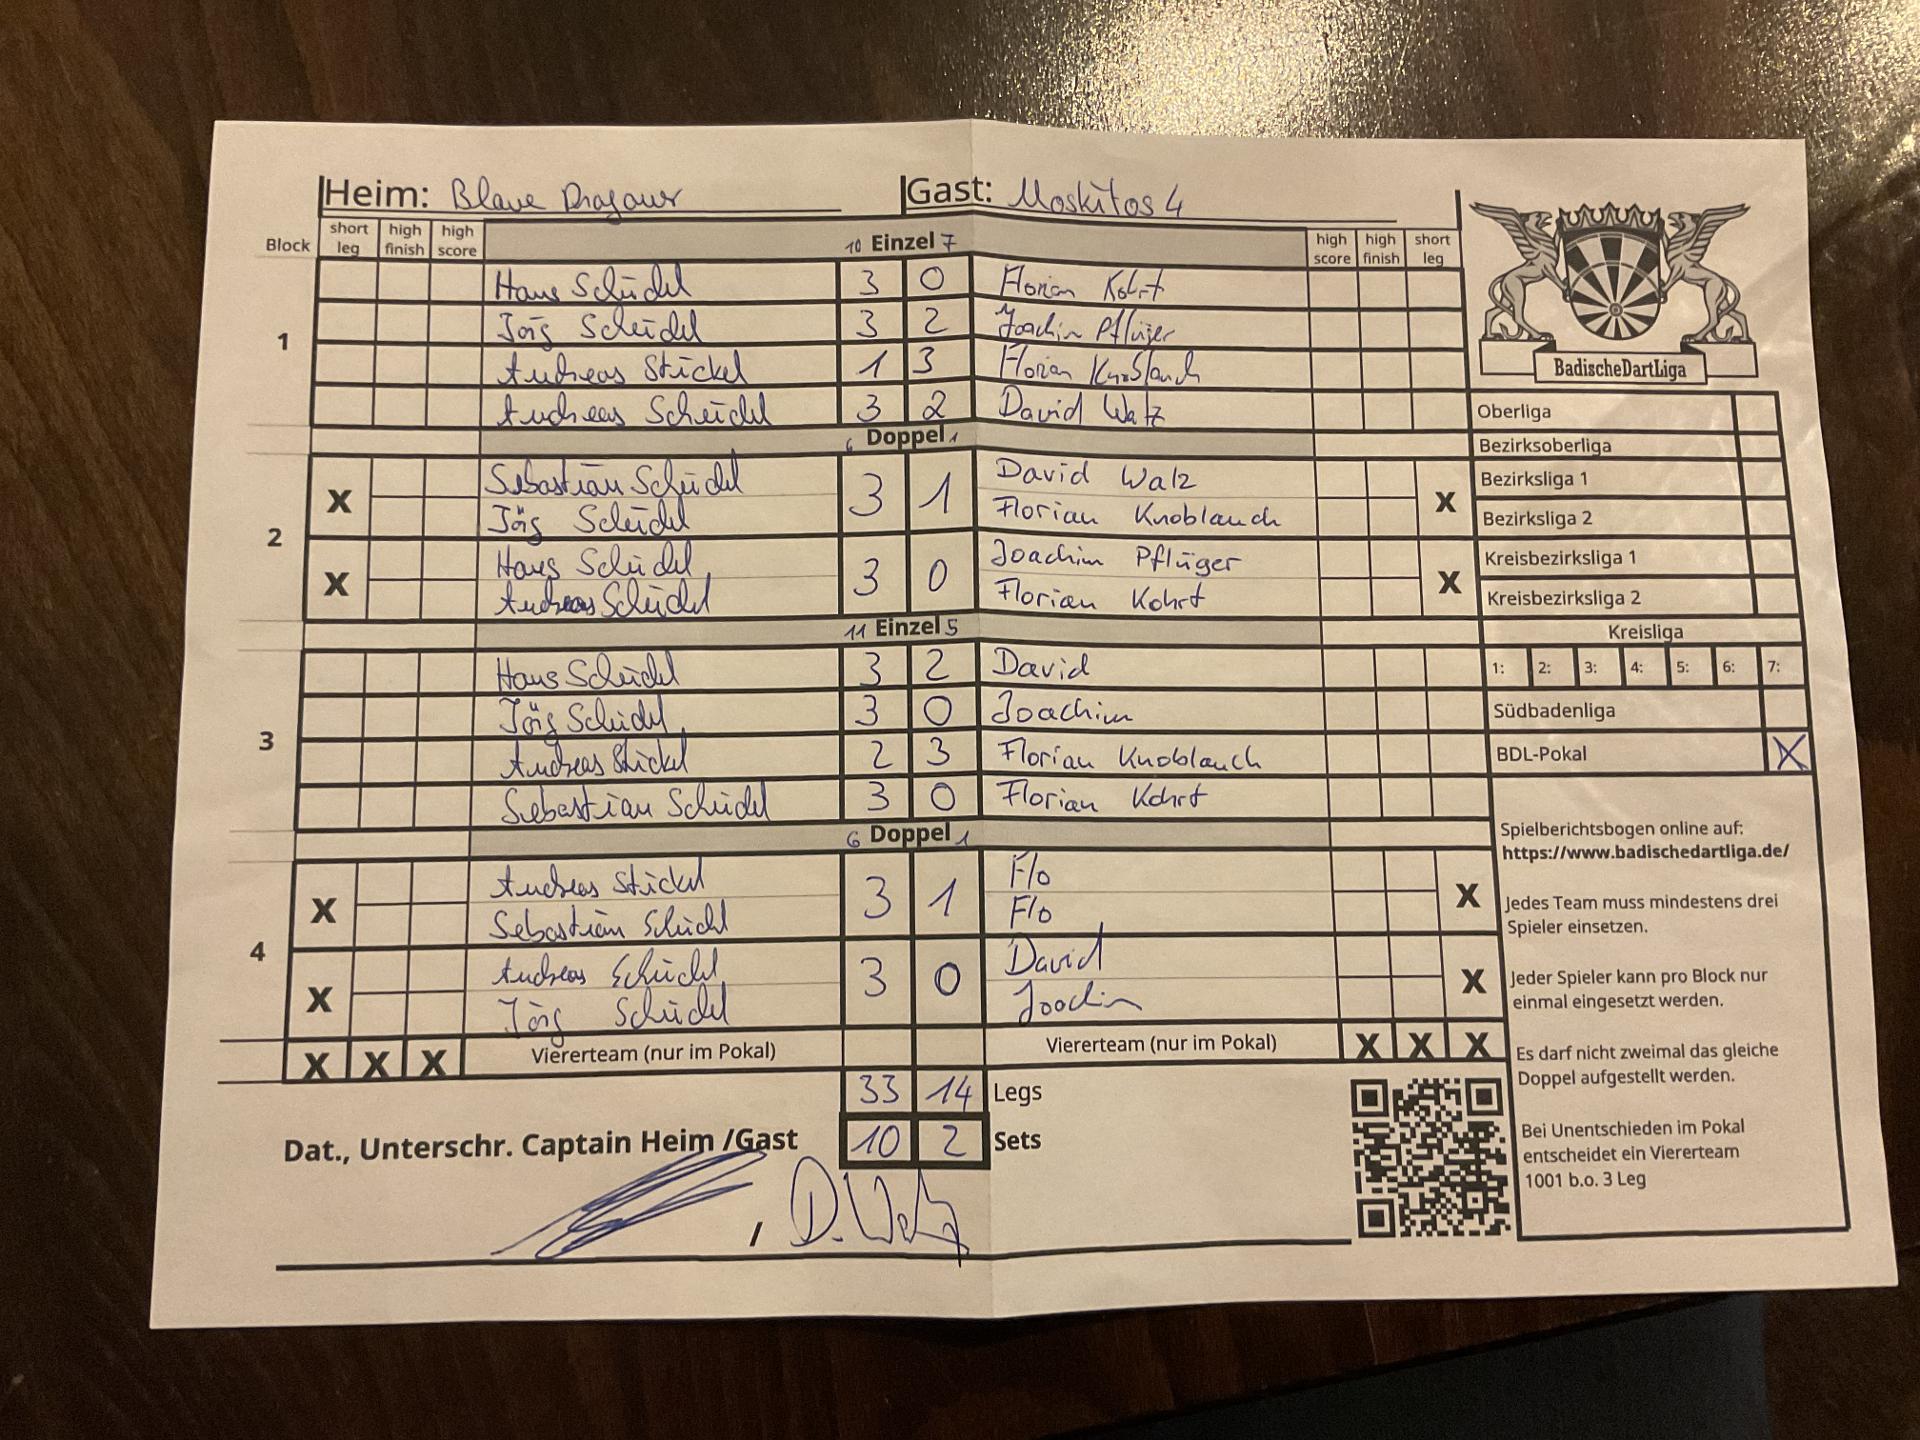 Heim: Blaue Dragons Gast: Moskitos 4
Block short leg high finish high score 10 Einzel 7 high score high finish short leg
1
Hans Scheidel 3 0 Florian Kohrt
Jörg Scheidel 3 2 Joachim Pflüger
Andreas Stickel 1 3 Florian Knoblauch
Andreas Scheidel 3 2 David Walz
6 Doppel 1
2
X Sebastian Scheidel 3 1 David Walz X
Jörg Scheidel Florian Knoblauch
X Hans Scheidel 3 0 Joachim Pflüger X
Andreas Scheidel Florian Kohrt
11 Einzel 5
3
Hans Scheidel 3 2 David
Jörg Scheidel 3 0 Joachim
Andreas Stickel 2 3 Florian Knoblauch
Sebastian Scheidel 3 0 Florian Kohrt
6 Doppel 1
4
X Andreas Stickel 3 1 Flo X
Sebastian Scheidel Flo
X Andreas Scheidel 3 0 David X
Jörg Scheidel Joachim
X X X Viererteam (nur im Pokal) Viererteam (nur im Pokal) X X X
33 14 Legs
10 2 Sets
Dat., Unterschr. Captain Heim /Gast
/ D. Walz
BadischeDartLiga
Oberliga
Bezirksoberliga
Bezirksliga 1
Bezirksliga 2
Kreisbezirksliga 1
Kreisbezirksliga 2
Kreisliga
1: 2: 3: 4: 5: 6: 7:
Südbadenliga
BDL-Pokal X
Spielberichtsbogen online auf:
https://www.badischedartliga.de/
Jedes Team muss mindestens drei
Spieler einsetzen.
Jeder Spieler kann pro Block nur
einmal eingesetzt werden.
Es darf nicht zweimal das gleiche
Doppel aufgestellt werden.
Bei Unentschieden im Pokal
entscheidet ein Viererteam
1001 b.o. 3 Leg